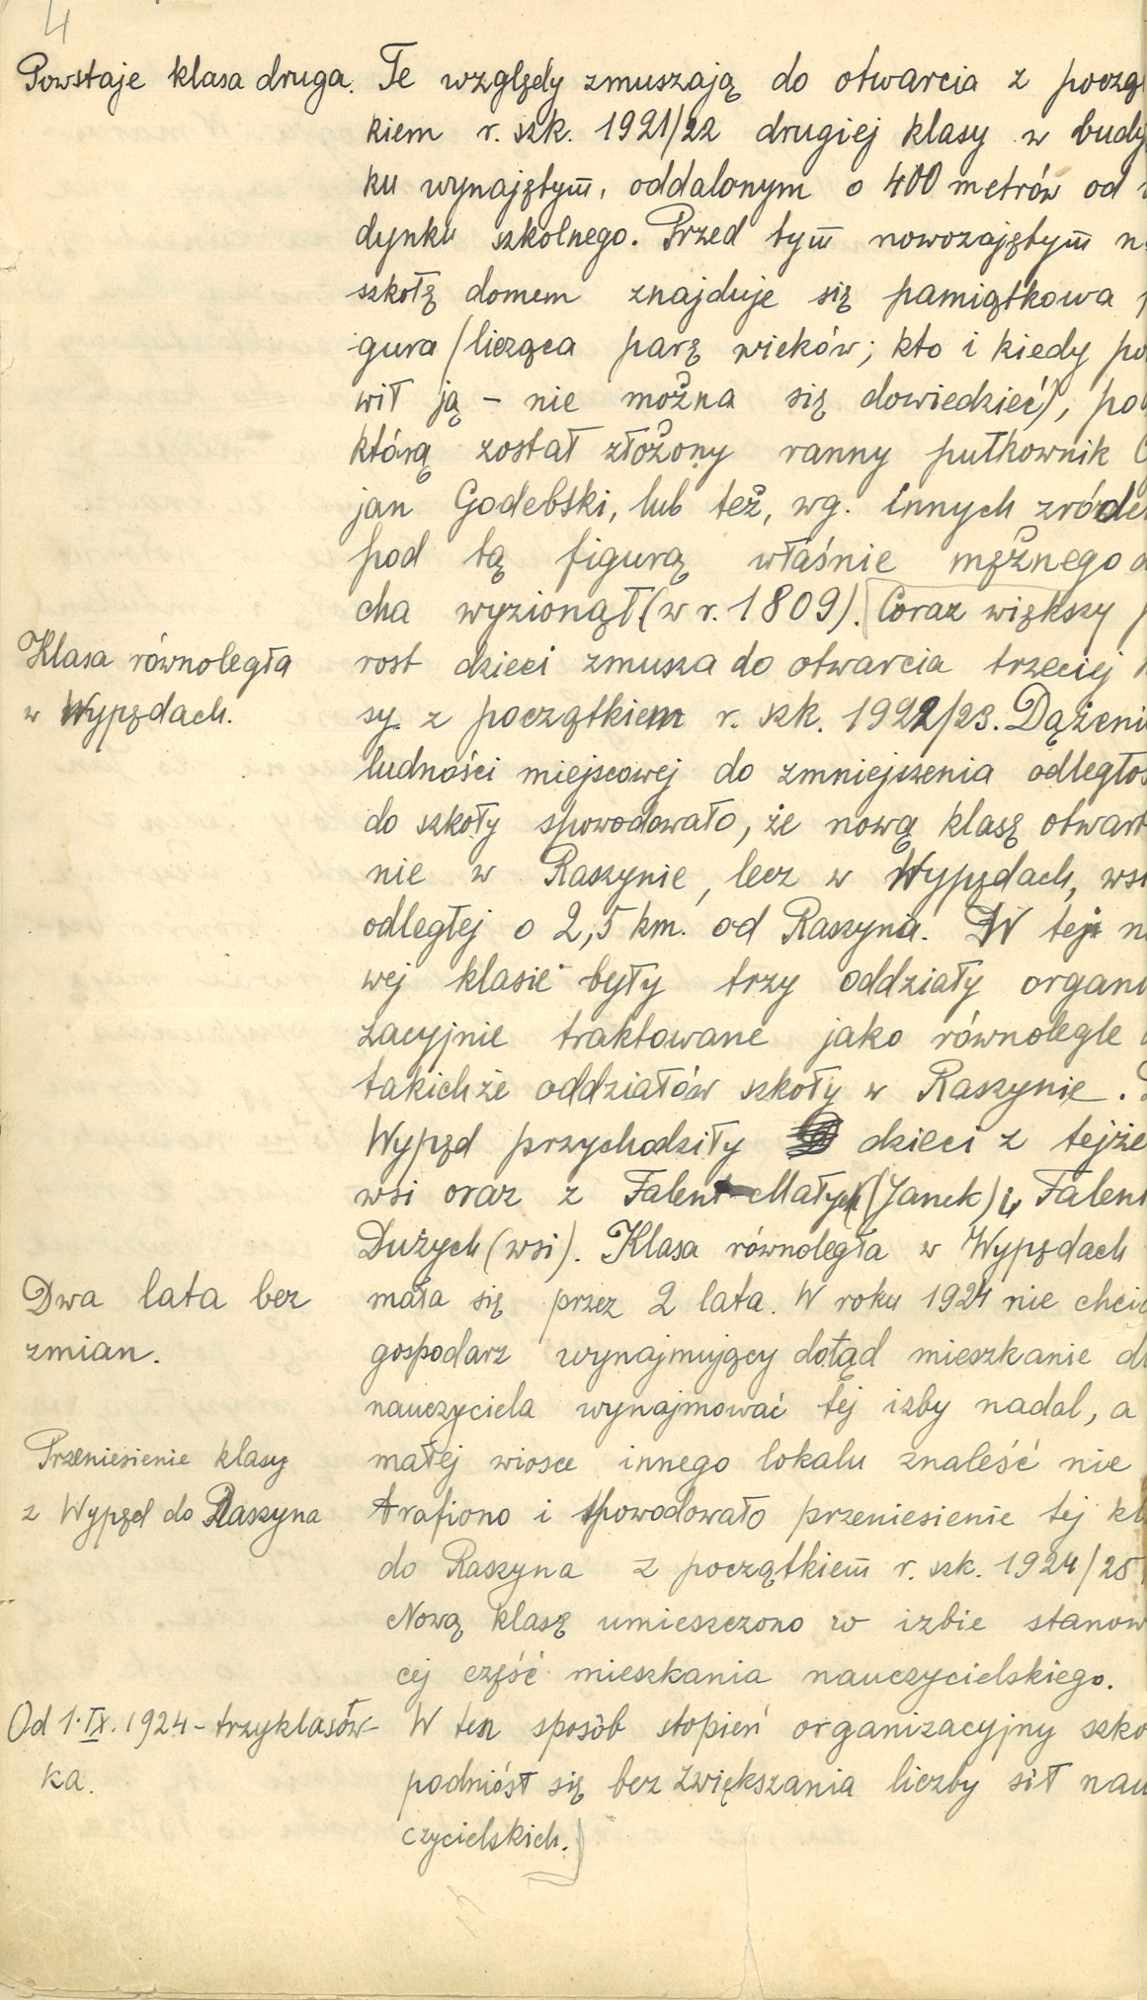 4
Powstaje klasa druga. Te względy zmuszają do otwarcia z począt
kiem r. szk. 1921/22 drugiej klasy w budy
ku wynajętym, oddalonym o 400 metrów od
dynku szkolnego. Przed tym nowozajętym n
szkołę domem znajduje się pamiątkowa
gura (licząca parę wieków; kto i kiedy po
wił ją – nie można się dowiedzieć), po
którą został złożony ranny pułkownik C
jan Godebski, lub też, wg. innych zróde
pod tą figurą właśnie mężnego d
cha wyzionął (w r. 1809). Coraz większy p
Klasa równoległa
rost dzieci zmusza do otwarcia trzeciej k
w Wypędach.
sy z początkiem r. szk. 1922/23. Dążeni
ludności miejscowej do zmniejszenia odległoś
do szkoły spowodowało, że nową klasę otwart
nie w Raszynie, lecz w Wypędach, wsi
odległej o 2,5 km. od Raszyna. W tej n
wej klasie były trzy oddziały organi
zacyjnie traktowane jako równoległe
takichże oddziałów szkoły w Raszynie. D
Wypęd przychodziły dzieci z tejże
wsi oraz z Falent Małych (Janek) i Falent
Dużych (wsi). Klasa równoległa w Wypędach
Dwa lata bez
mała się przez 2 lata. W roku 1924 nie chcia
zmian.
gospodarz wynajmujący dotąd mieszkanie dl
nauczyciela wynajmować tej izby nadal, a
Przeniesienie klasy
małej wiosce innego lokalu znaleść nie
z Wypęd do Raszyna
trafiono i spowodowało przeniesienie tej kl
do Raszyna z początkiem r. szk. 1924/25
Nową klasę umieszczono w izbie stanow
cej część mieszkania nauczycielskiego.
Od 1.IX.1924 – trzyklasów-
W ten sposób stopień organizacyjny szko
ka.
podniósł się bez zwiększania liczby sił nau
czycielskich.)